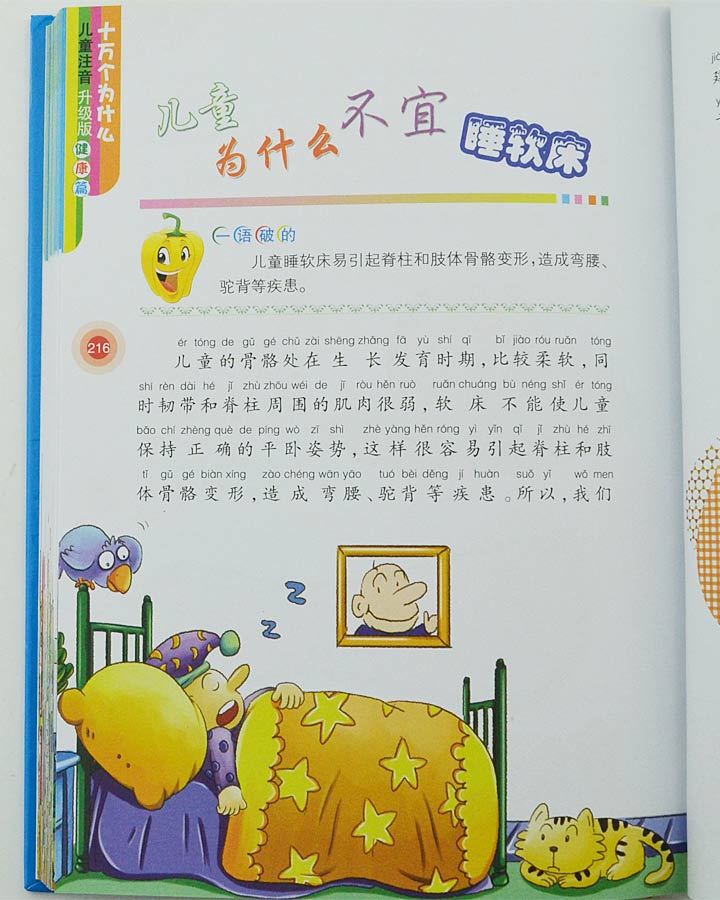 十万个为什么
儿童注音 升级版 健康篇
儿童
为什么
不宜
睡软床
一语破的
儿童睡软床易引起脊柱和肢体骨骼变形,造成弯腰、
驼背等疾患。
216
ér tóng de gǔ gé chǔ zài shēng zhǎng fā yù shí qī bǐ jiào róu ruǎn tóng
儿童的骨骼处在生长发育时期,比较柔软,同
shí rèn dài hé jǐ zhù zhōu wéi de jī ròu hěn ruò ruǎn chuáng bù néng shǐ ér tóng
时韧带和脊柱周围的肌肉很弱,软床不能使儿童
bǎo chí zhèng què de píng wò zī shì zhè yàng hěn róng yì yǐn qǐ jǐ zhù hé zhī
保持正确的平卧姿势,这样很容易引起脊柱和肢
tǐ gǔ gé biàn xíng zào chéng wān yāo tuó bèi děng jí huàn suǒ yǐ wǒ men
体骨骼变形,造成弯腰、驼背等疾患。所以,我们
Z
Z